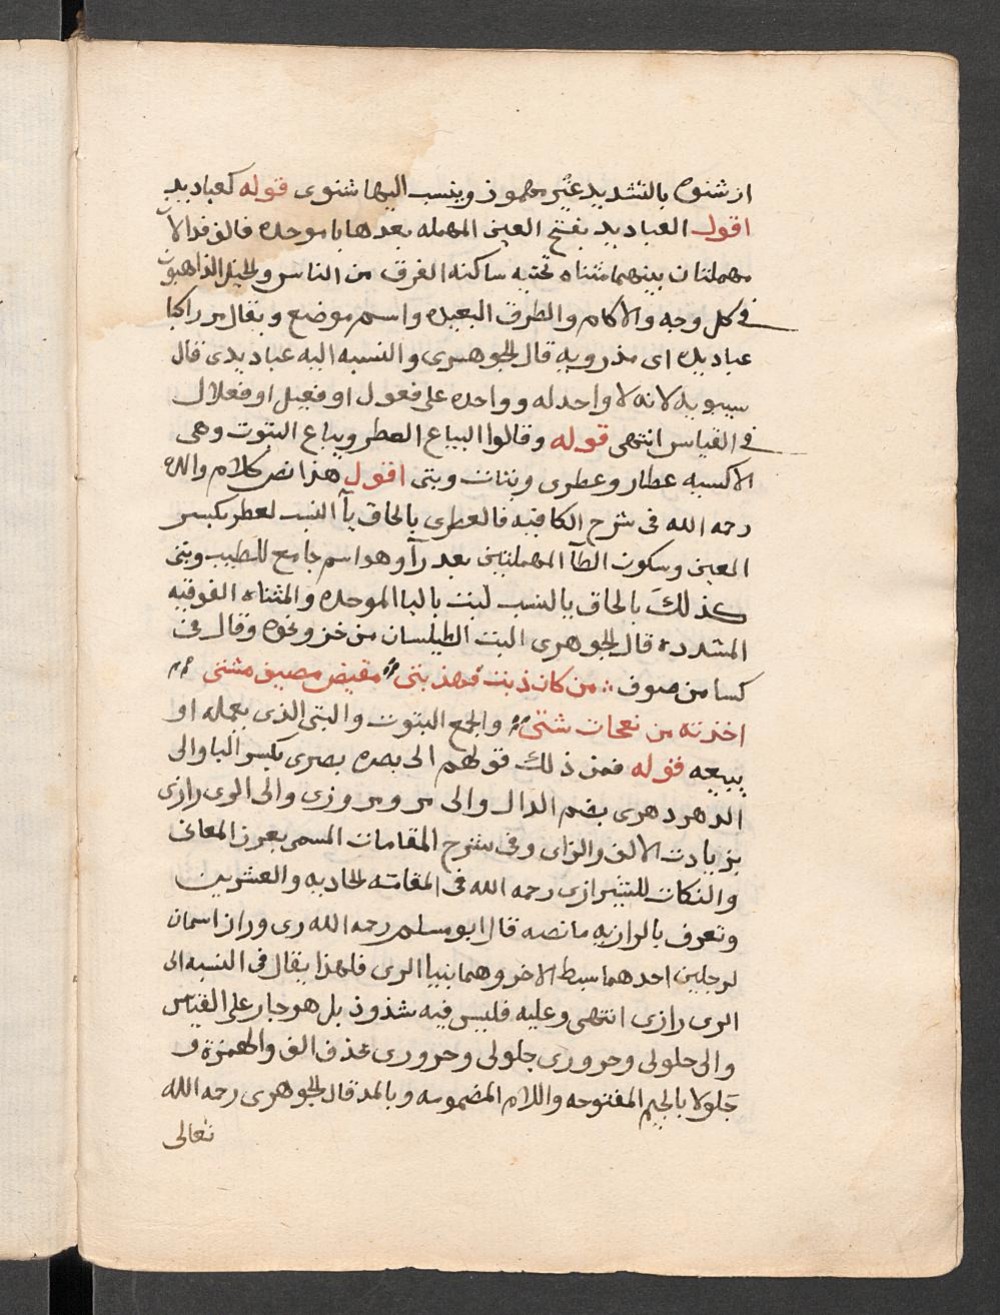 ازشنوه بالتشديد غير مهموز وينسب اليها شنوى قوله كعباديد
اقول العباديد بفتح العين المهمله بعدها باموحده فالف فدالان
مهملتان بينهما مثناه تحتيه ساكنه الفرق من الناس والخيل الذاهبون
فى كل وجه والاكام والطرق البعيده واسم موضع ويقال مر راكبا
عباديده اى مذرويه قال الجوهرى والنسبه اليه عباديدى قال
سيبويه لانه لا واحد له وواحده على فعول او فعيل او فعلال
فى القياس انتهى قوله وقالوا البياع العطر وبياع البتوت وهى
الاكسيه عطار وعطرى وبتات وبتى اقول هذا نص كلام والده
رحمه الله فى شرح الكافيه فالعطرى بالحاق يآ النسب لعطر بكسر
العين وسكون الطآ المهملتين بعد رآ وهو اسم جامع للطيب وبتى
كذلك بالحاق يا النسب لبت بالبا الموحده والمثناه الفوقيه
المشدده قال الجوهرى البت الطيلسان من خز ونحوه وقال فى
كسا من صوف من كان ذبت فهذ بتى مقيض مصيف مشتى
اخذته من نعجات شتى والجمع البتوت والبتى الذى يعمله او
يبيعه قوله فمن ذلك قولهم الى بصره بصرى بكسر البا والى
الدهر دهرى بضم الدال والى مرو مروزى والى الرى رازى
بزيادت الالف والزاى وفى شرح المقامات المسمى بغرر المعانى
والنكات للشيرازى رحمه الله فى المقامه الحاديه والعشرين
وتعرف بالرازيه مانصه قال ابو مسلم رحمه الله رى وراز اسمان
لرجلين احدهما سبط الاخر وهما بنيا الرى فلهذا يقال فى النسبه الى
الرى رازى انتهى وعليه فليس فيه شذوذ بل هو جار على القياس
والى جلولى وحرورى جلولى وحرورى بحذف الف والهمزة و
جلولا بالجيم المفتوحه واللام المضمومه وبالمد قال الجوهرى رحمه الله
تعالى